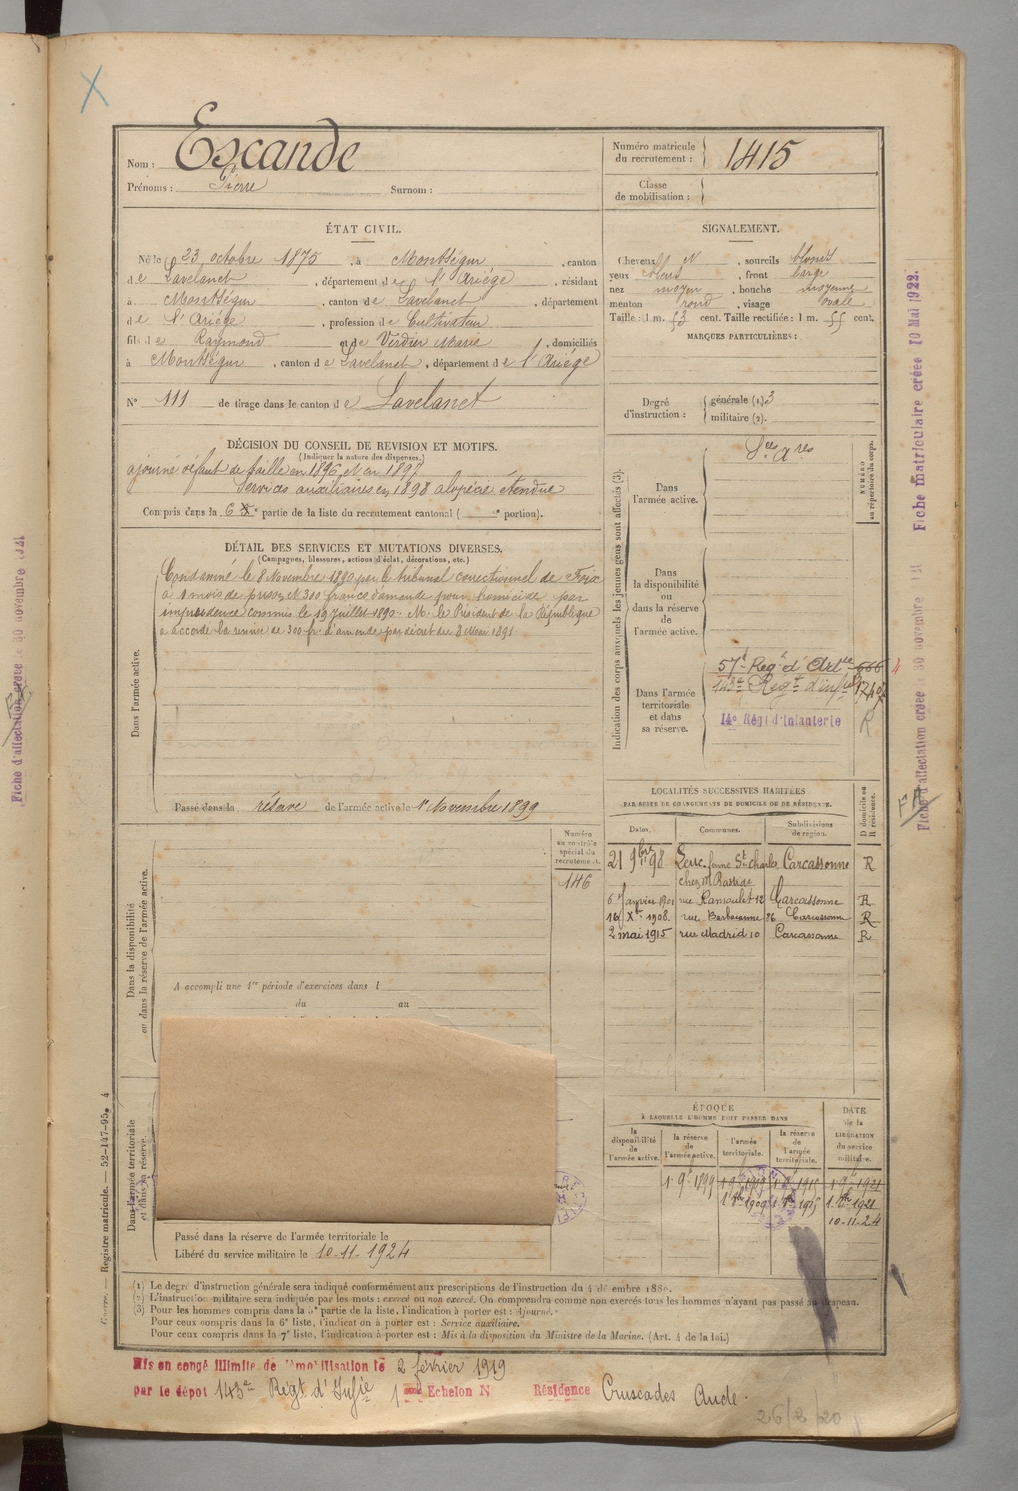 Nom : Escande
Prénoms : Pierre Surnom :
Numéro matricule du recrutement : 1415
Classe de mobilisation :
ÉTAT CIVIL.
Né le 23 octobre 1875, à Montségur, canton
de Lavelanet, département de l'Ariége, résidant
à Montségur, canton de Lavelanet, département
de l'Ariége, profession de Cultivateur
fils de Raymond et de Verdier Marie, domiciliés
à Montségur, canton de Lavelanet, département de l'Ariége
N° 111 de tirage dans le canton de Lavelanet
SIGNALEMENT.
Cheveux et N, sourcils blonds
yeux bleus, front large
nez moyen, bouche moyenne
menton rond, visage ovale
Taille : 1 m. 53 cent. Taille rectifiée : 1 m. 55 cent.
MARQUES PARTICULIÈRES :
Degré d'instruction : générale (1) 3
militaire (2).
DÉCISION DU CONSEIL DE REVISION ET MOTIFS.
(Indiquer la nature des dispenses.)
ajourné défaut de taille en 1896, et en 1897
Services auxiliaires en 1898 alopécie étendue
Compris dans la 6e partie de la liste du recrutement cantonal ( e portion).
DÉTAIL DES SERVICES ET MUTATIONS DIVERSES.
(Campagnes, blessures, actions d'éclat, décorations, etc.)
Condamné le 8 Novembre 1890 par le tribunal correctionnel de Foix
à 1 mois de prison et 300 francs d'amende pour homicide par
imprudence commis le 19 Juillet 1890. M. le Président de la République
a accordé la remise de 300 fr. d'amende par décret du 8 Mai 1891
Dans l'armée active.
Passé dans la réserve de l'armée active le 1er Novembre 1899
Indication des corps auxquels les jeunes gens sont affectés (3).
NUMÉRO au répertoire du corps.
Dans l'armée active.
Sces Ares
Dans la disponibilité ou dans la réserve de l'armée active.
Dans l'armée territoriale et dans sa réserve.
57e Regt d'Artie 666
143e Regt d'infie
14e Régt d'Infanterie R
LOCALITÉS SUCCESSIVES HABITÉES
PAR SUITE DE CHANGEMENTS DE DOMICILE OU DE RÉSIDENCE.
Dates. Communes. Subdivisions de région. D domicile ou R résidence.
21 9bre 98 ferme St Charles Carcassonne R
chez M
6 Janvier 1901 rue Ramoulet 12 Carcassonne R
16 Xe 1908. rue Barbacanne 86 Carcassonne R
2 mai 1915 rue Madrid 10 Carcassonne R
Numéro au contrôle spécial du recrutement.
146
Dans la disponibilité ou dans la réserve de l'armée active.
A accompli une 1re période d'exercices dans l
du au
Dans l'armée territoriale et dans sa réserve.
Passé dans la réserve de l'armée territoriale le
Libéré du service militaire le 10-11-1924
ÉPOQUE
À LAQUELLE L'HOMME DOIT PASSER DANS
la disponibilité de l'armée active. la réserve de l'armée active. l'armée territoriale. la réserve de l'armée territoriale. DATE de la LIBÉRATION du service militaire.
1 9e 1899 1 9e 1915 1 9e 1921
1 9bre 1909 1 9bre 1915 1 9bre 1921
10-11-24
(1) Le degré d'instruction générale sera indiqué conformément aux prescriptions de l'instruction du 4 décembre 1889.
(2) L'instruction militaire sera indiquée par les mots : exercé ou non exercé. On comprendra comme non exercés tous les hommes n'ayant pas passé au drapeau.
(3) Pour les hommes compris dans la 5e partie de la liste, l'indication à porter est : Ajourné.
Pour ceux compris dans la 6e liste, l'indication à porter est : Service auxiliaire.
Pour ceux compris dans la 7e liste, l'indication à porter est : Mis à la disposition du Ministre de la Marine. (Art. 4 de la loi.)
Mis en congé illimité de démobilisation le 2 février 1919
par le dépôt 143e Régt d'Infie 1 Echelon N Résidence Cruscades Aude.
26/2/20
Registre matricule. — 52-147-95. 4
Fiche matriculaire créée 10 Mai 1922.
Fiche d'affectation créée le 30 novembre 1921
FA
Fiche d'affectation créée le 30 novembre 1921